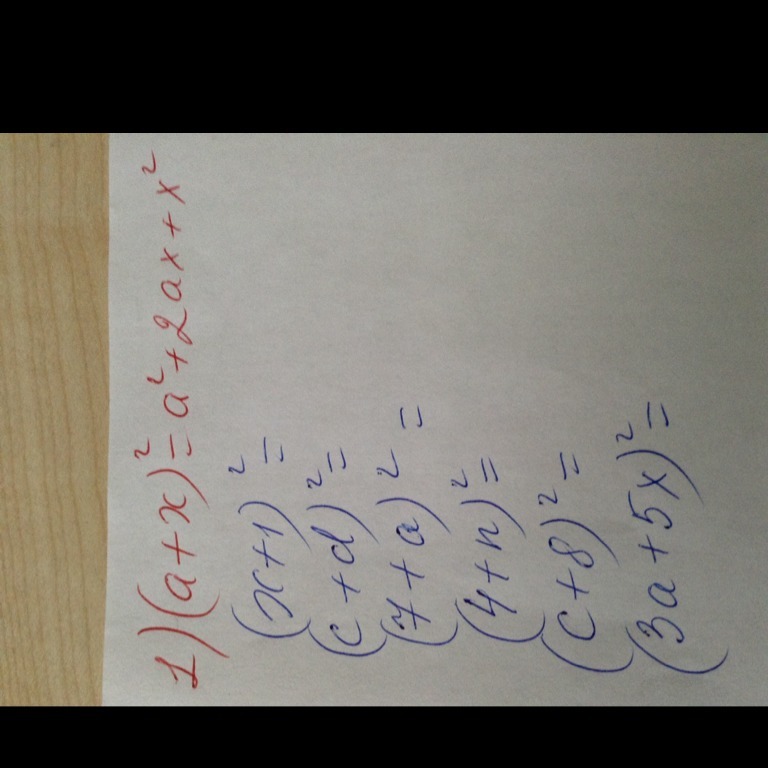 1) (a+x)² = a²+2ax+x²
(x+1)² =
(c+d)² =
(7+a)² =
(4+n)² =
(c+8)² =
(3a+5x)² =